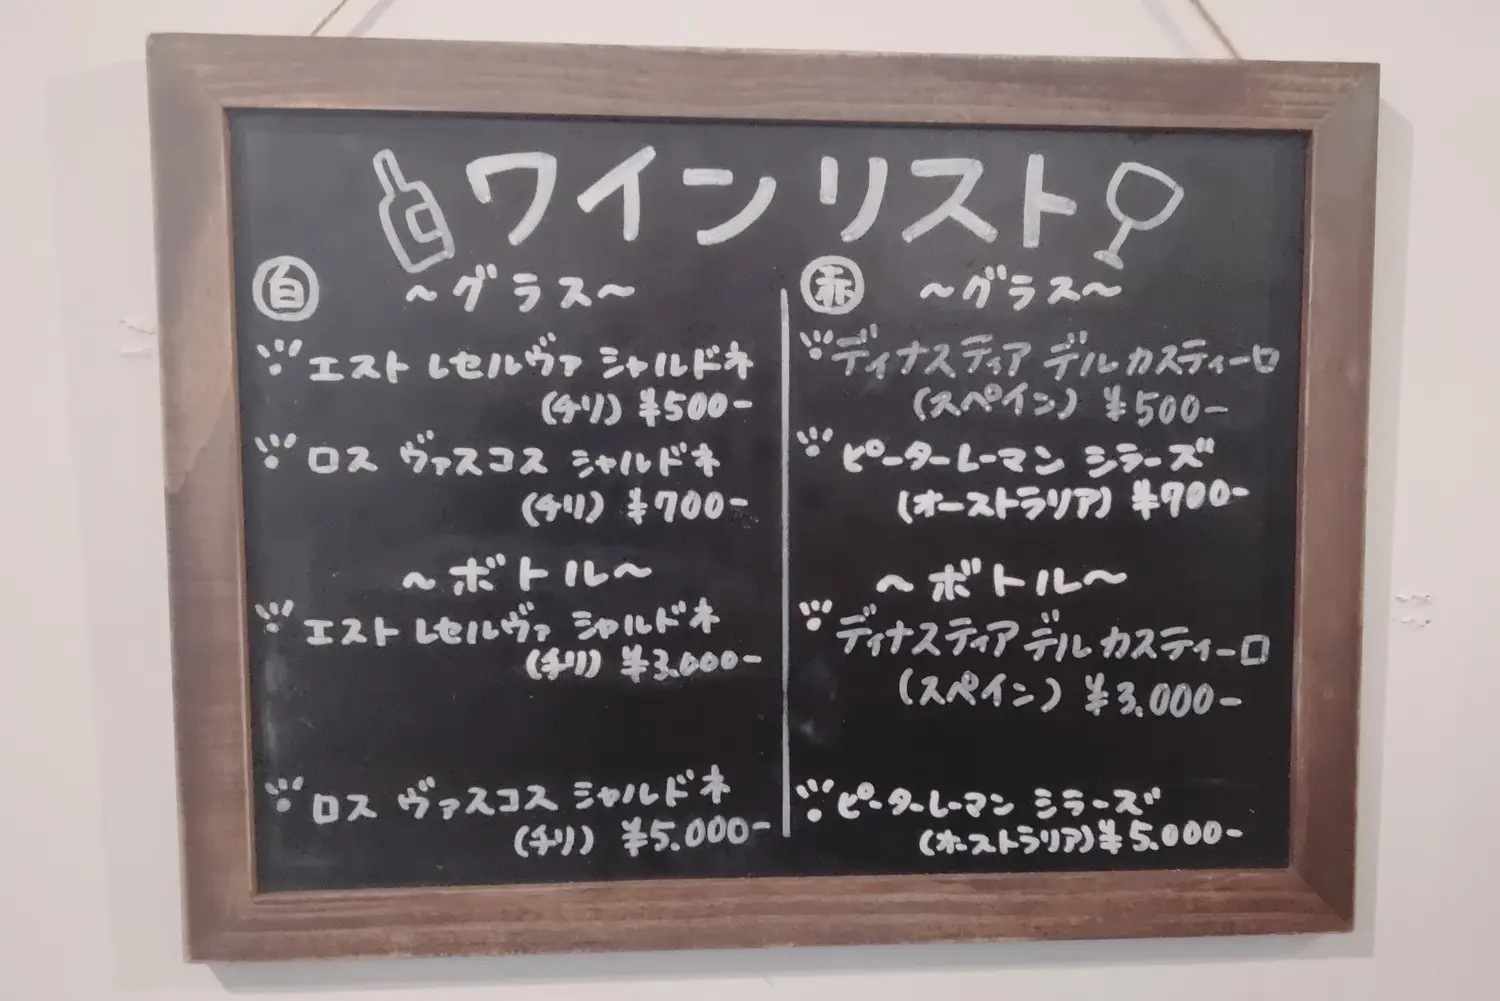 ワインリスト
白 〜グラス〜
エスト レセルヴァ シャルドネ
(チリ) ¥500-
ロス ヴァスコス シャルドネ
(チリ) ¥700-
〜ボトル〜
エスト レセルヴァ シャルドネ
(チリ) ¥3.000-
ロス ヴァスコス シャルドネ
(チリ) ¥5.000-
赤 〜グラス〜
ディナスティア デル カスティーロ
(スペイン) ¥500-
ピーターレーマン シラーズ
(オーストラリア) ¥700-
〜ボトル〜
ディナスティア デル カスティーロ
(スペイン) ¥3.000-
ピーターレーマン シラーズ
(オーストラリア) ¥5.000-